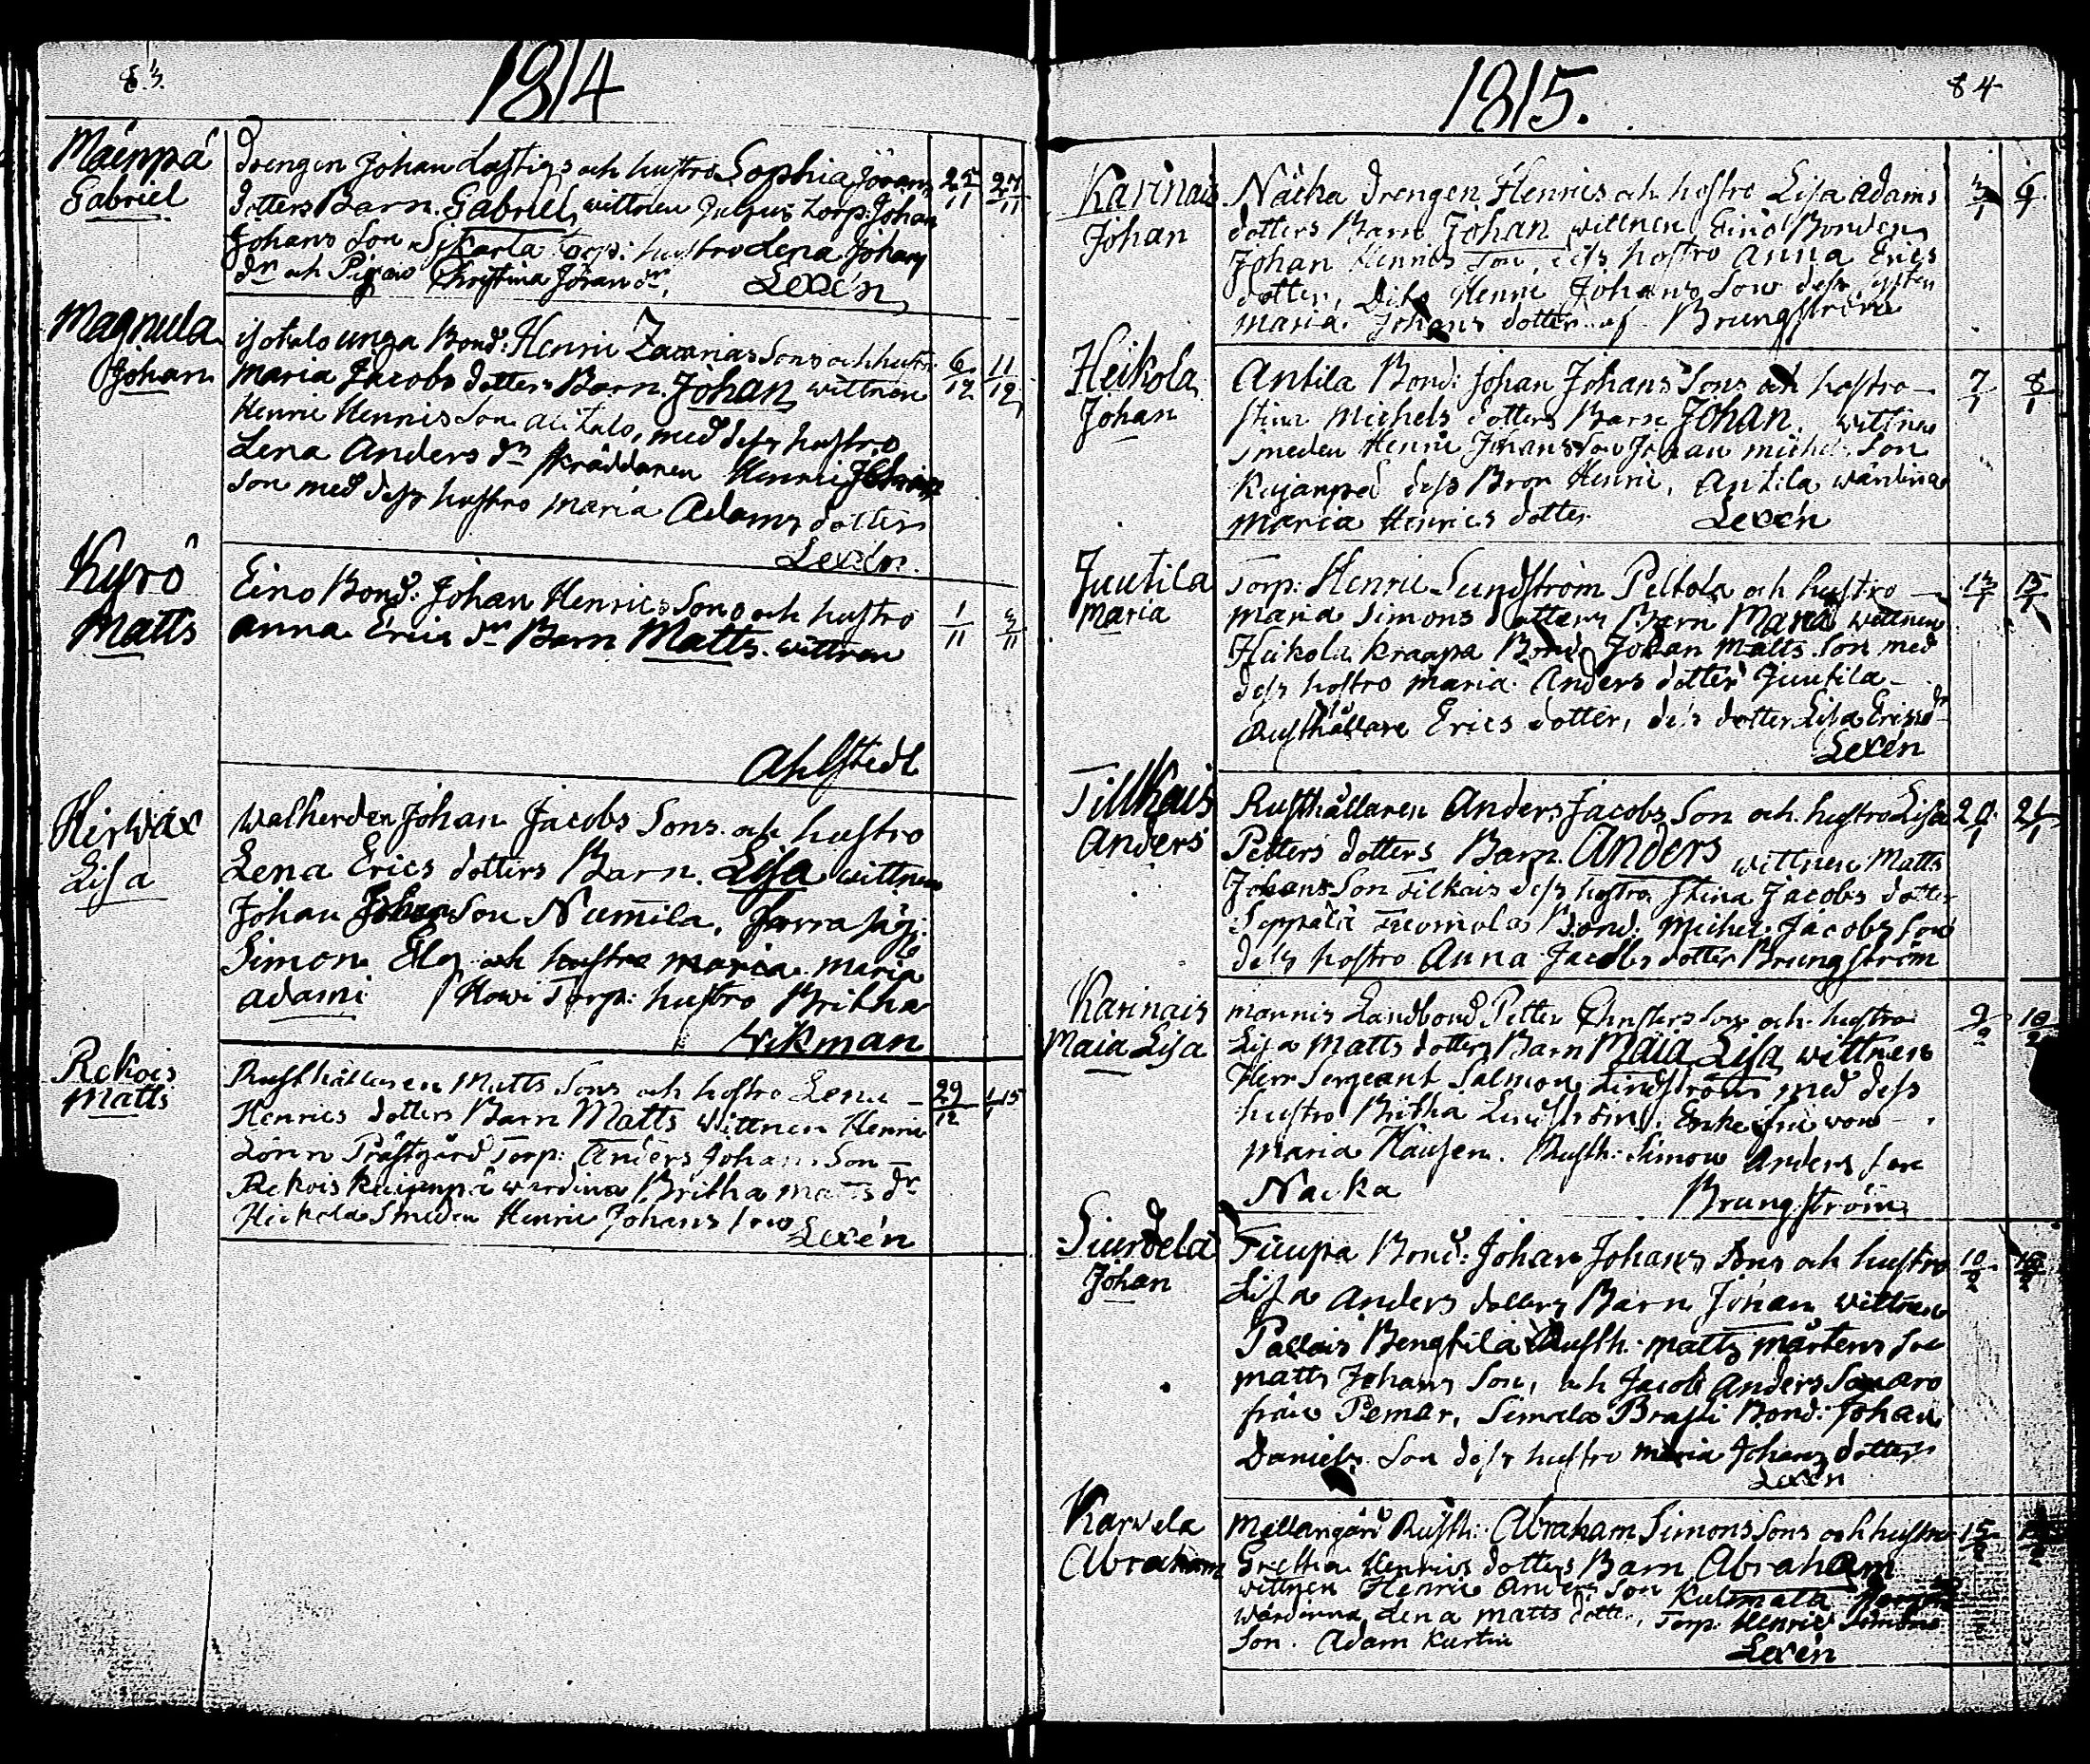 83.
1814
Mäenpä
Gabriel
Drengen Johan Lustigs och hustro Sophia Jörans
dotters Barn. Gabriel, wittnen Torp: Johan
Johans Son Torp: hustro Lena Johans
dr och Pigan Christina Jöransdr,
Lexén
25/11 27/11
Magnula
Johan
isotalo unga Bond: Henric Zacarias Sons och hustro
Maria Jacobs dotters Barn. Johan, wittnen
Henric Henrics Son alitalo, med dess hustro
Lena Anders dr skräddaren Henric
Son med dess hustro Maria Adams dotter
Lexén.
6/12 11/12
Kyrö
Matts
Eino Bond: Johan Henrics Sons och hustro
Anna Erics dr Barn Matts. wittnen
Ahlstedt
1/11 3/11
Hirwax
Lisa
Walherden Johan Jacobs Sons. och hustro
Lena Erics dotters Barn. Lisa wittnen
Johan Son Numila,
Simon Elg och hustro maria. maria
adami Torp: hustro Britha
Wikman
Rekois
Matts
Rusthållaren Matts Sons och hostro Lena
Henrics dotters Barn Matts Wittnen Henric
Lönn Prästgård Torp: Anders Johans Son
Rekois wärdina Britha matts dr
Heikola Smeden Henric Johans Son
Lexén
29/12 1/1 15
1815.
84
Karinais
Johan
Näcka Drengen Henrics och hostro Lisa adams
dotters Barn Johan wittnen Eino Bonden
Johan Henrics Son, dess hostro Anna Erics
dotter, Dito Henric Johans Son dess syster
Maria Johans dotter. Brungström
3/1 6/1
Heikola
Johan
Antila Bond: Johan Johans Sons och hostro
Stina Michels dotters Barn Johan. wittnen
Smeden Henric Johans Son Johan michels Son
Kujanpä dess Bror Henric, Antila wärdina
Maria Henrics dotter. Lexén
7/1 8/1
Juutila
Maria
Torp: Henric Sundström Peltola och hustro
maria Simons dotters Barn Maria wittnen
Heikola Kraapa Bond: Johan Matts Son med
dess hostro maria Anders dotter Juutila
Rusthållare Erics dotter, dess dotter Lisa Ericsdr
Lexén
13/1 15/1
Tillkais
Anders
Rusthållaren Anders Jacobs Son och hustro Lisa
Petters dotters Barn. Anders wittnen Matts
Johans Son Tilkais dess hostro Stina Jacobs dotter
Seppälä Tuomolas Bond: Michel Jacobs Son
dess hostro Anna Jacobs dotter Brungström
20/1 21/1
Karinais
Maia Lisa
mannis Landbond Petter Christers Son och hustro
Lisa Matts dotters Barn Maia Lisa wittnen
Herr Sergeant Salmon Lindström med dess
hustro Britha Lindström, Enkefru von
Maria Häusen. Rusth: Simon Anders Son
Nacka Brungström
9/2 10/2
Siurdela
Johan
Tuupa Bond: Johan Johans Sons och hustro
Lisa Anders dotters Barn Johan wittnen
Pallais Bengtila Rusth: matts mårtens Son
matts Johans Son, och Jacob Anders Son
från Pemar, Simala Brasti Bond: Johan
Daniels Son dess hustro maria Johans dotter
Lexén
10/2
Karvela
Abraham
Mellangård Rusth: Abraham Simons Sons och hustro
Gretha Henrics dotters Barn Abraham
wittnen Henric Anders Son
wärdinna Lena matts dotter, Torp: Henric Simons
Son. Adam Kurtin
Lexén
15/2